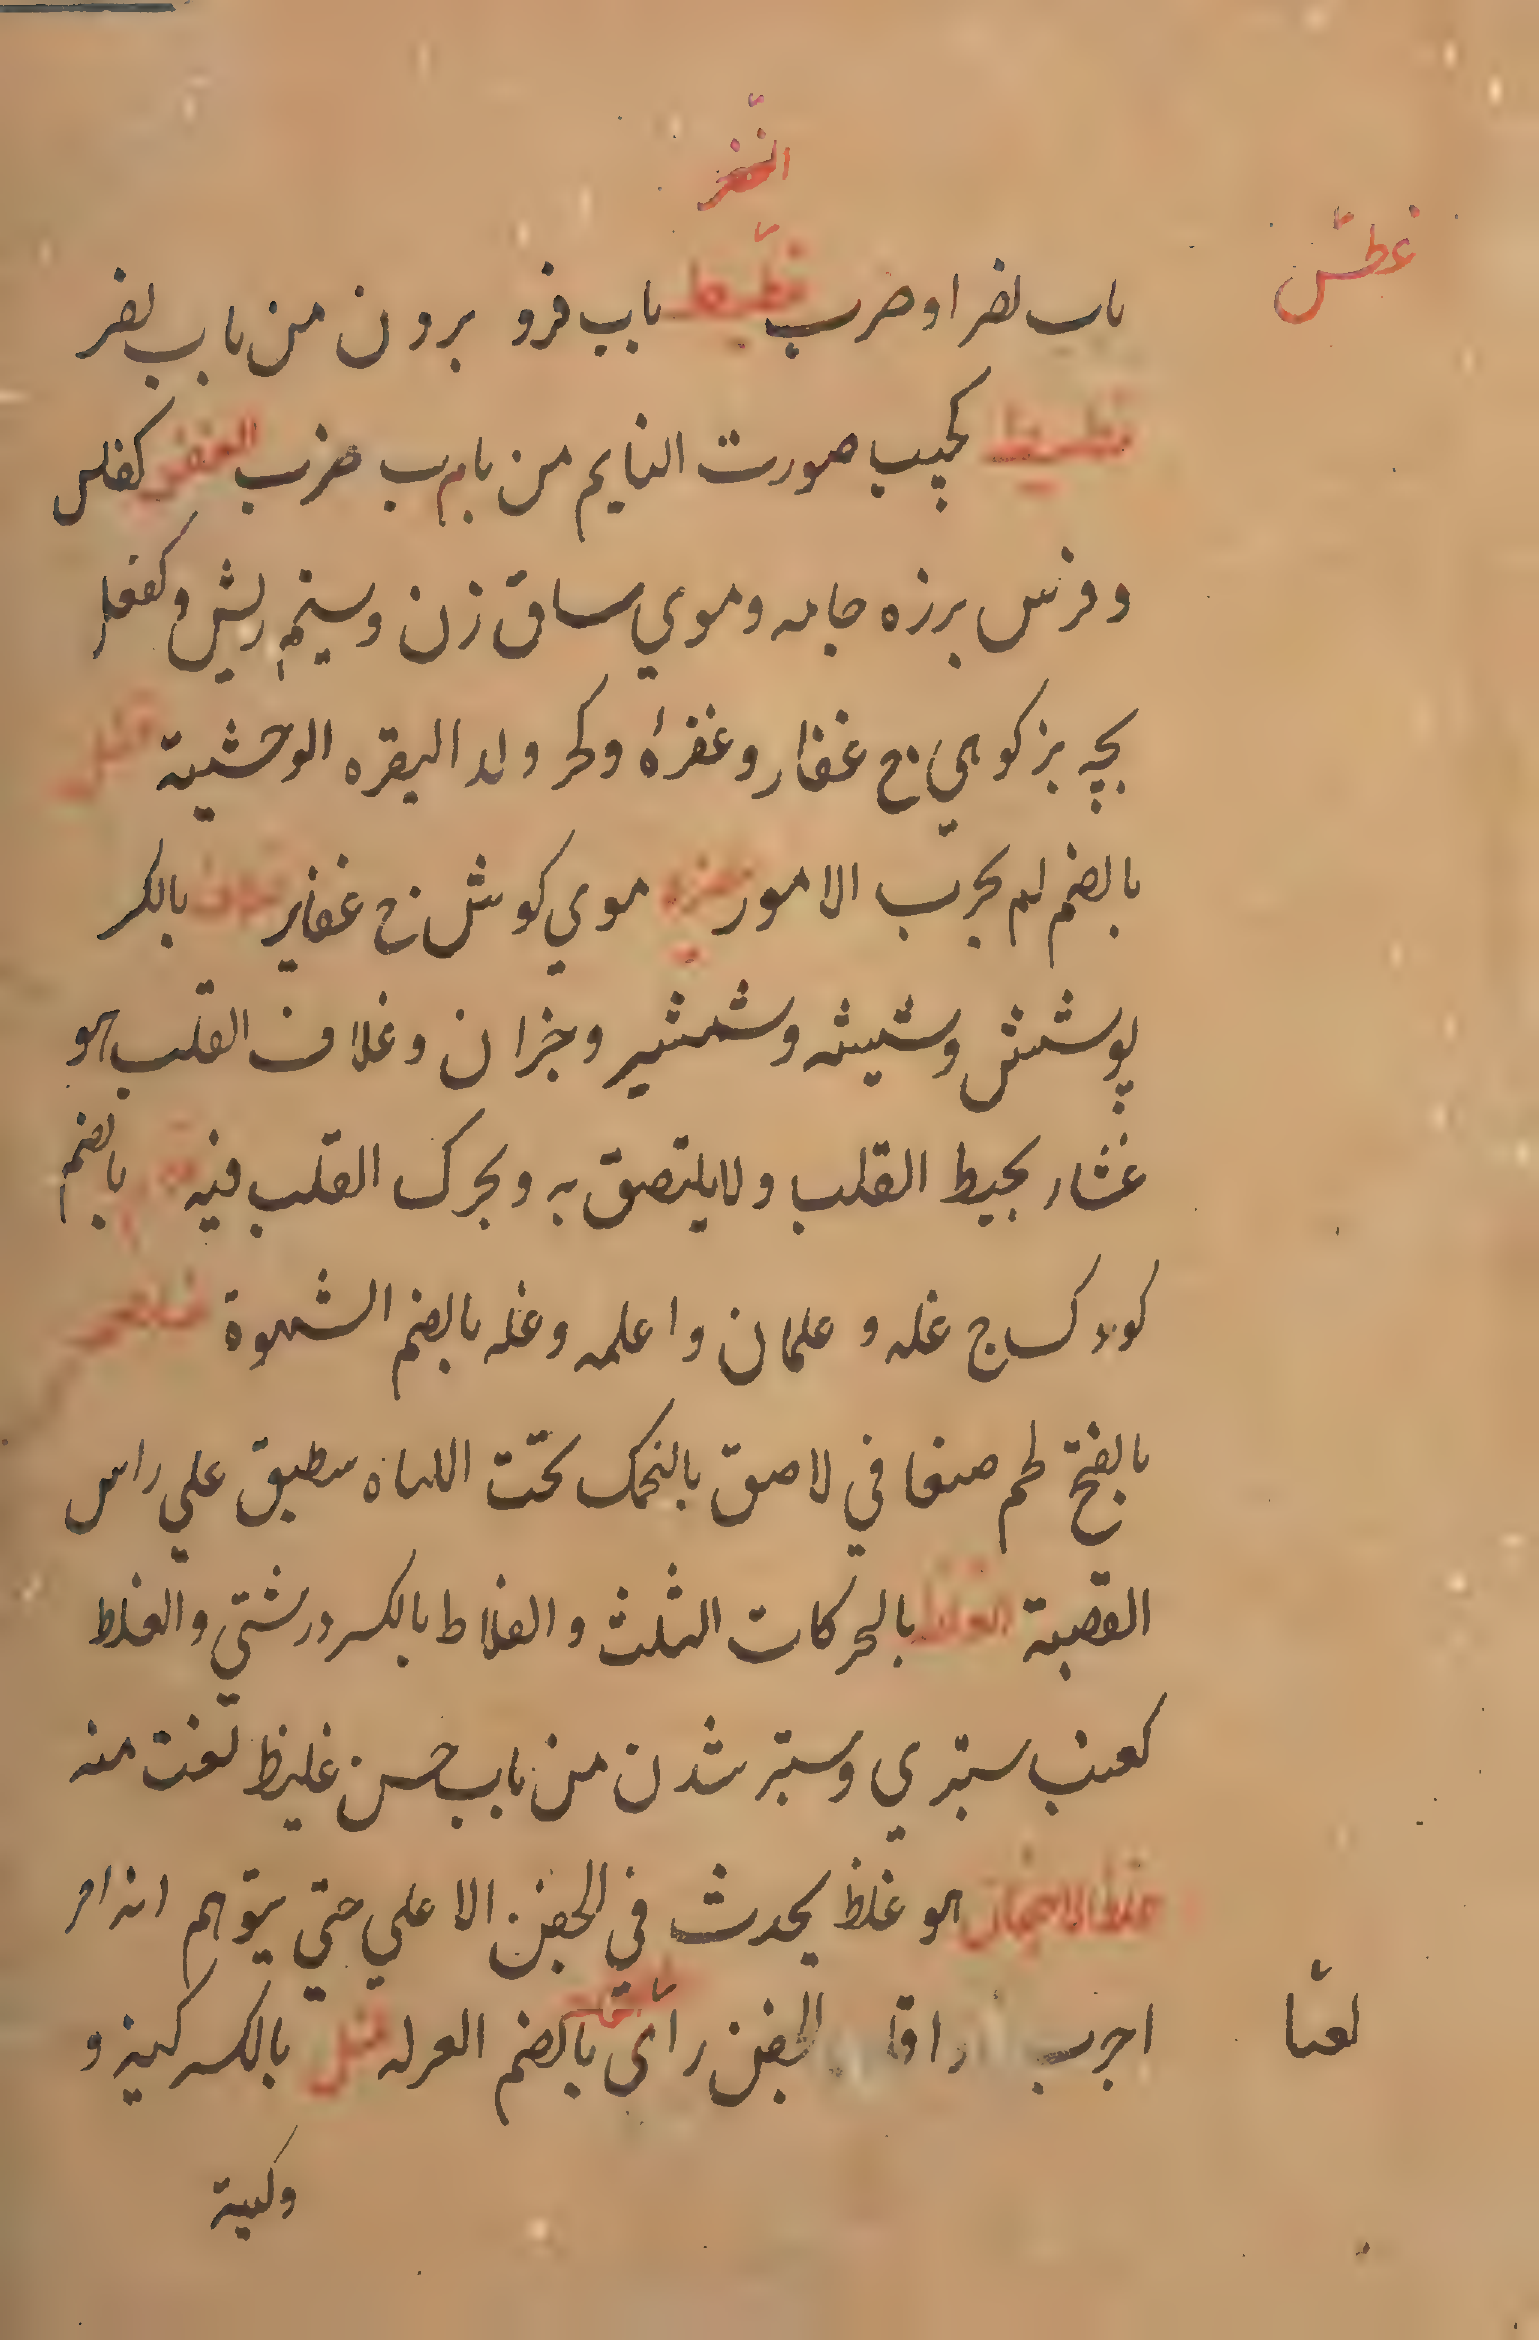 غطس
باب نصر او ضرب غطيط باب فرو بردن من باب نصر
غطيط كجيب صورت النايم من باب ضرب الغفر كفلس
وفرس برزه جامه وموي ساق زن و ريش وكقفل
بچه بز كوهي ج غفار وغفرة و ولد البقره الوحشية غفل
بالضم لم يجرب الامور غفيره موي كوش ج غفاير غلاف بالكسر
پوشش وشيشه وشمشير وجزان وغلاف القلب هو
غشاء يحيط القلب ولا يلتصق به ويحرك القلب فيه بالضم
كودك ج غلمه و غلمان و اغلمه وغلمه بالضم الشهوة
بالفتح لحم صفاقي لاصق بالحنك تحت اللهاة منطبق علي راس
القصبة الغلظ بالحركات الثلث و الغلاظ بالكسر درشتي والغلظ
كعنب ستبري وستبر شدن من باب حسن غليظ نعت منه
غلظ الاجفان هو غلظ يحدث في الجفن الاعلي حتي يتوهم انه
اجرب الجفن بالضم العزله غل بالكسر كينه و
وكينة